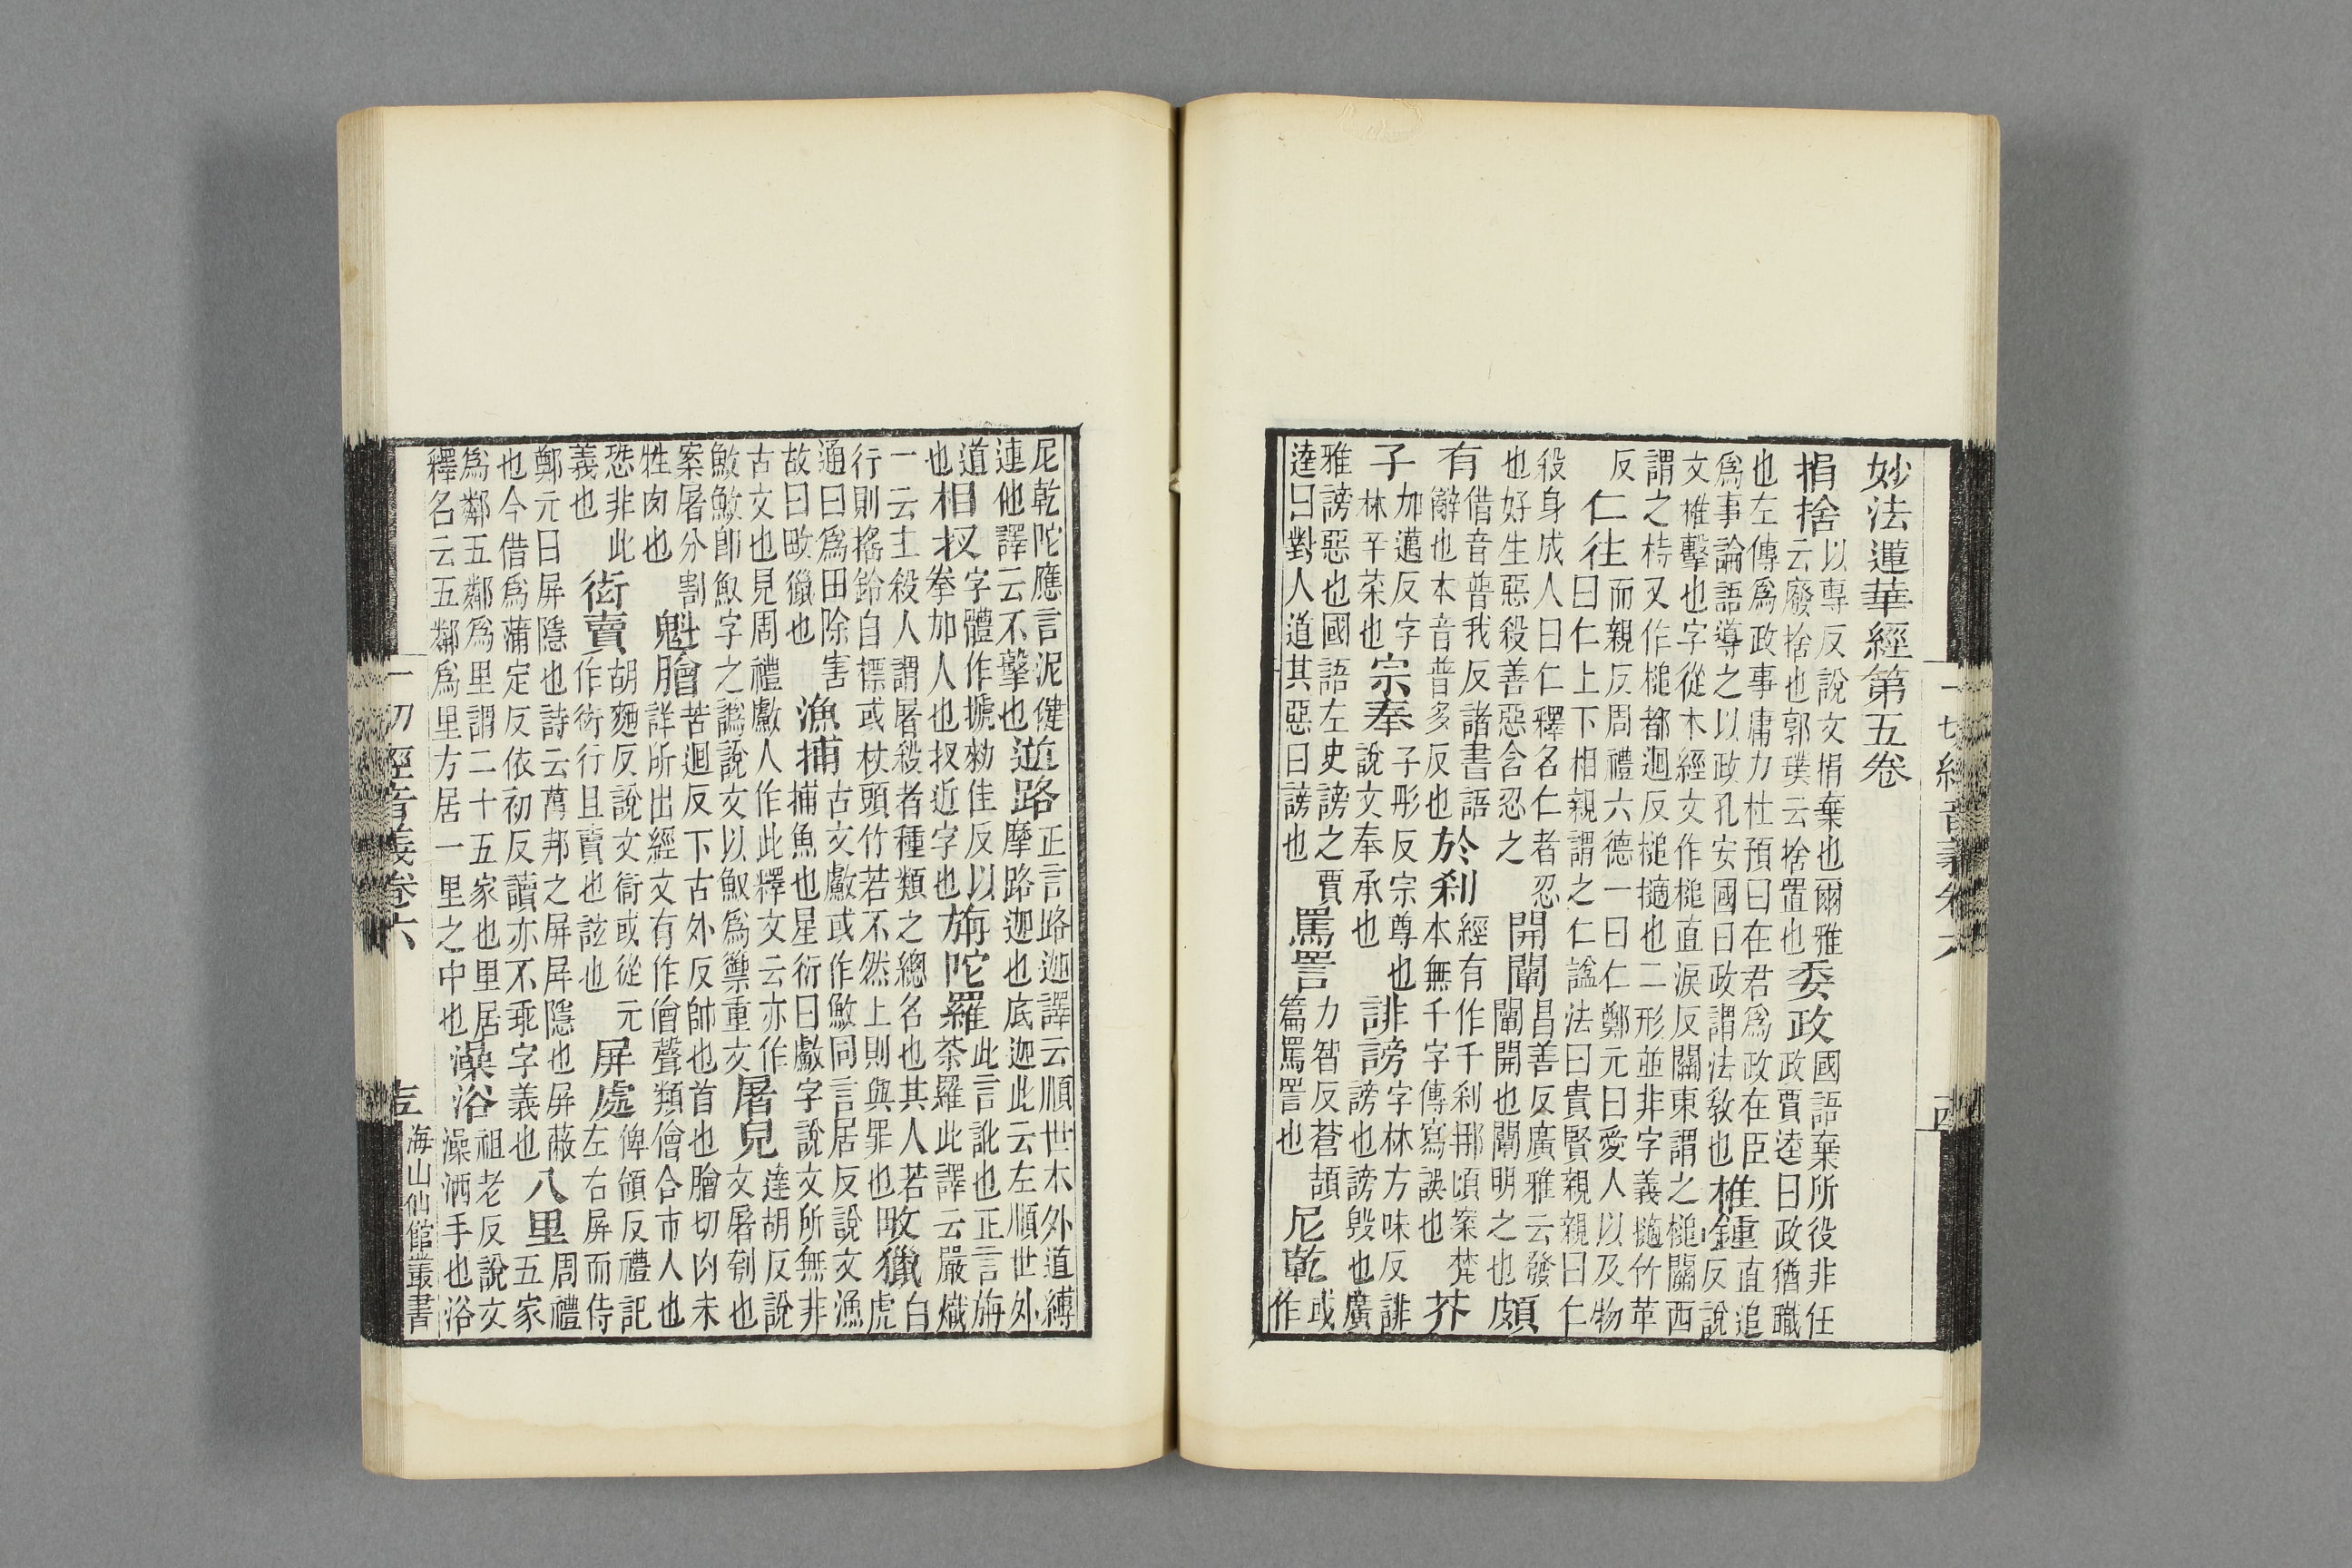 一切經音義卷六
妙法蓮華經第五卷
捐捨以專反說文捐棄也爾雅云廢捨也郭璞云捨置也委政國語棄所役非任政賈逵曰政猶職
也左傳為政事庸力杜預曰在君為政在臣為事論語導之以政孔安國曰政謂法敎也椎鍾直追反說
文椎擊也字從木經文作槌直淚反關東謂之槌關西謂之㭙又作槌都迴反槌擿也二形並非字義擿竹革
反仁往而親反周禮六德一曰仁鄭元曰愛人以及物曰仁上下相親謂之仁諡法曰貴賢親親曰仁
殺身成人曰仁釋名仁者忍也好生惡殺善惡含忍之開闡昌善反廣雅云發闡開也闡明之也頗
有借音普我反諸書語辭也本音普多反也於剎經有作千剎挪頃案梵本無千字傳寫誤也芥
子加邁反字林辛菜也宗奉子彤反宗尊也說文奉承也誹謗字林方味反誹謗也謗毀也廣
雅謗惡也國語左史謗之賈逵曰對人道其惡曰謗也罵詈力智反蒼頡篇罵詈也尼乾或作
尼乾陀應言泥健連他譯云不擊也逆路正言路迦譯云順世木外道縛摩路迦也底迦此云左順世外
道也相扠字體作搋勑佳反以拳加人也扠近字也旃陀羅此言訛也正言旃荼羅此譯云嚴熾
一云主殺人謂屠殺者種類之總名也其人若行則搖鈴自摽或杖頭竹若不然上則與罪也畋獵白虎
通曰為田除害故曰畋獵也漁捕古文䱷或作䰻同言居反說文漁捕魚也星衍曰䱷字說文所無非
古文也見周禮䱷人作此釋文云亦作䰻䰻卽䱷字之譌說文以䰻為籞重文屠兒達胡反說文屠刳也
案屠分割牲肉也魁膾苦迴反下古外反帥也首也膾切肉未詳所出經文有作儈聲類儈合市人也
恐非此義也衒賣胡麵反說文衙或從元作衒行且賣也詃也屏處俾領反禮記左右屏而侍
鄭元曰屏隱也詩云萬邦之屏屏隱也屏蔽也今借為蒲定反依初反讀亦不乖字義也八里周禮五家
為鄰五鄰為里謂二十五家也里居釋名云五鄰為里方居一里之中也澡浴祖老反說文澡洒手也浴
一切經音義卷六
海山仙館叢書